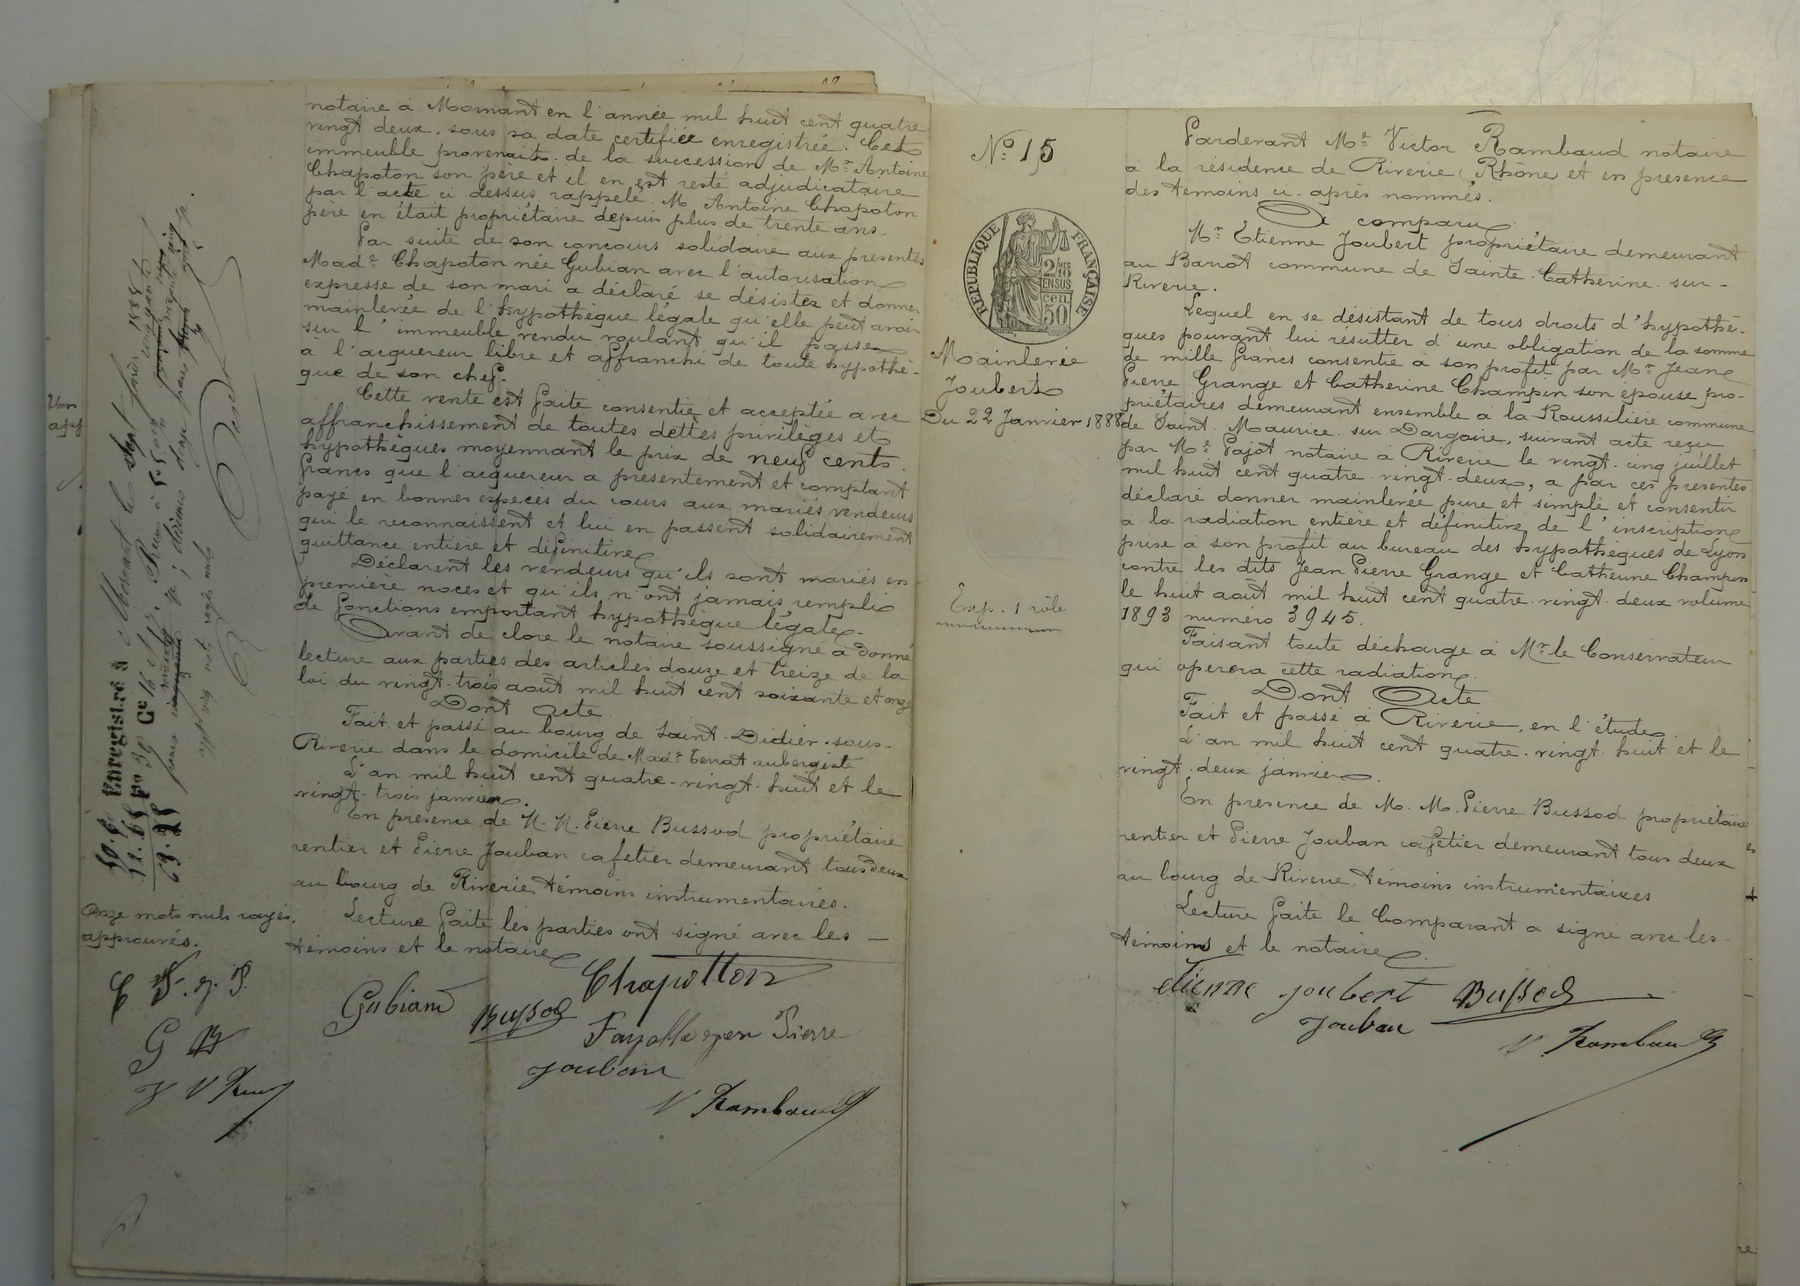 notaire à Mornant en l'année mil huit cent quatre
vingt deux, sous sa date certifiée enregistrée. Cet
immeuble provenait de la succession de Mr Antoine
Chapoton son père et il en est resté adjudicataire
par l'acte ci dessus rappelé. M. Antoine Chapoton
père en était propriétaire depuis plus de trente ans.
Par suite de son concours solidaire aux présentes
Made Chapoton née Gubian avec l'autorisation
expresse de son mari a déclaré se désister et donner
mainlevée de l'hypothèque légale qu'elle peut avoir
sur l'immeuble vendu voulant qu'il passe
à l'acquereur libre et affranchi de toute hypothè-
que de son chef.
Cette vente est faite consentie et acceptée avec
affranchissement de toutes dettes privilèges et
hypothèques moyennant le prix de neuf cents
francs que l'acquereur a présentement et comptant
payé en bonnes espèces du cours aux mariés vendeurs
qui le reconnaissent et lui en passent solidairement
quittance entière et définitive.
Déclarent les vendeurs qu'ils sont mariés en
première noces et qu'ils n'ont jamais rempli
de fonctions emportant hypothèque légale.
Avant de clore le notaire soussigné a donné
lecture aux parties des articles douze et treize de la
loi du vingt-trois août mil huit cent soixante et onze
Dont Acte
Fait et passé au bourg de Saint-Didier-sous-
Riverie dans le domicile de Made aubergiste
L'an mil huit cent quatre-vingt-huit et le
vingt-trois janvier.
En présence de M. M. Pierre Bussod propriétaire
rentier et Pierre Jouban cafetier demeurant tous deux
au bourg de Riverie témoins instrumentaires.
Lecture faite les parties ont signé avec les
témoins et le notaire
Gubian Bussod Chapotton
Fayolle jean Pierre
Jouban
V Rambaud
Enregistré à Mornant le sept février 1888
fo 39 Ce 16
50.
12.
63.
Onze mots nuls rayés
approuvés.
C F. J. P.
G B
J V R
No 15
RÉPUBLIQUE FRANÇAISE
2/10 EN SUS
50 cen
Mainlevée
Joubert
Du 22 Janvier 1888
Exp. 1 rôle
Pardevant Me Victor Rambaud notaire
à la résidence de Riverie (Rhône) et en présence
des témoins ci-après nommés.
A comparu
Mr Etienne Joubert propriétaire demeurant
au Barrot commune de Sainte-Catherine-sur-
Riverie.
Lequel en se désistant de tous droits d'hypothè-
ques pouvant lui résulter d'une obligation de la somme
de mille francs consentie à son profit par Mr Jean
Pierre Grange et Catherine Champin son épouse pro-
priétaires demeurant ensemble à la Roussilière commune
de Saint-Maurice-sur-Dargoire, suivant acte reçu
par Me Pajot notaire à Riverie le vingt-cinq juillet
mil huit cent quatre-vingt-deux, a par ces présentes
déclaré donner mainlevée pure et simple et consentir
à la radiation entière et définitive de l'inscription
prise à son profit au bureau des hypothèques de Lyon
contre les dits Jean Pierre Grange et Catherine Champin
le huit août mil huit cent quatre-vingt-deux volume
1893 numéro 3945.
Faisant toute décharge à Mr le Conservateur
qui operera cette radiation.
Dont Acte
Fait et passé à Riverie, en l'étude.
L'an mil huit cent quatre-vingt-huit et le
vingt-deux janvier.
En présence de M. M. Pierre Bussod propriétaire
rentier et Pierre Jouban cafetier demeurant tous deux
au bourg de Riverie, témoins instrumentaires
Lecture faite le Comparant a signé avec les
témoins et le notaire.
etienne joubert Bussod
Jouban
V Rambaud